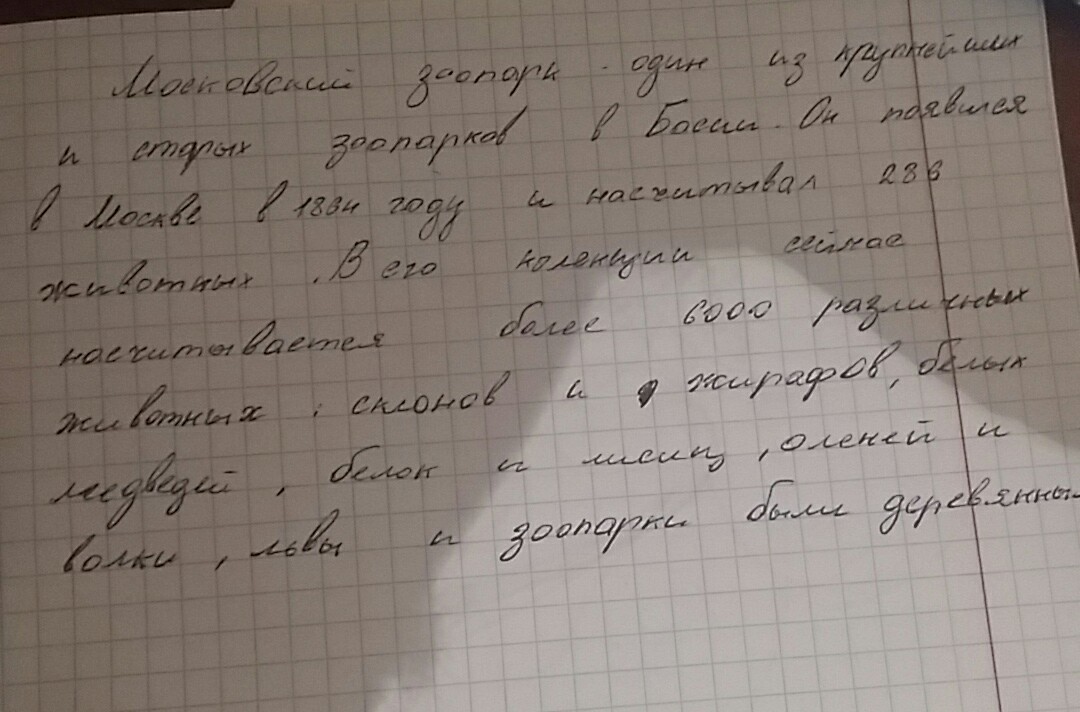 Московский зоопарк - один из крупнейших
и старых зоопарков в Босии. Он появился
в Москве в 1864 году и насчитывал 286
животных. В его коленции сейчас
насчитывается более 6000 различных
животных: склонов и жирафов, белых
медведей, белок и лисиц, оленей и
волки, львы и зоопарки были деревянны